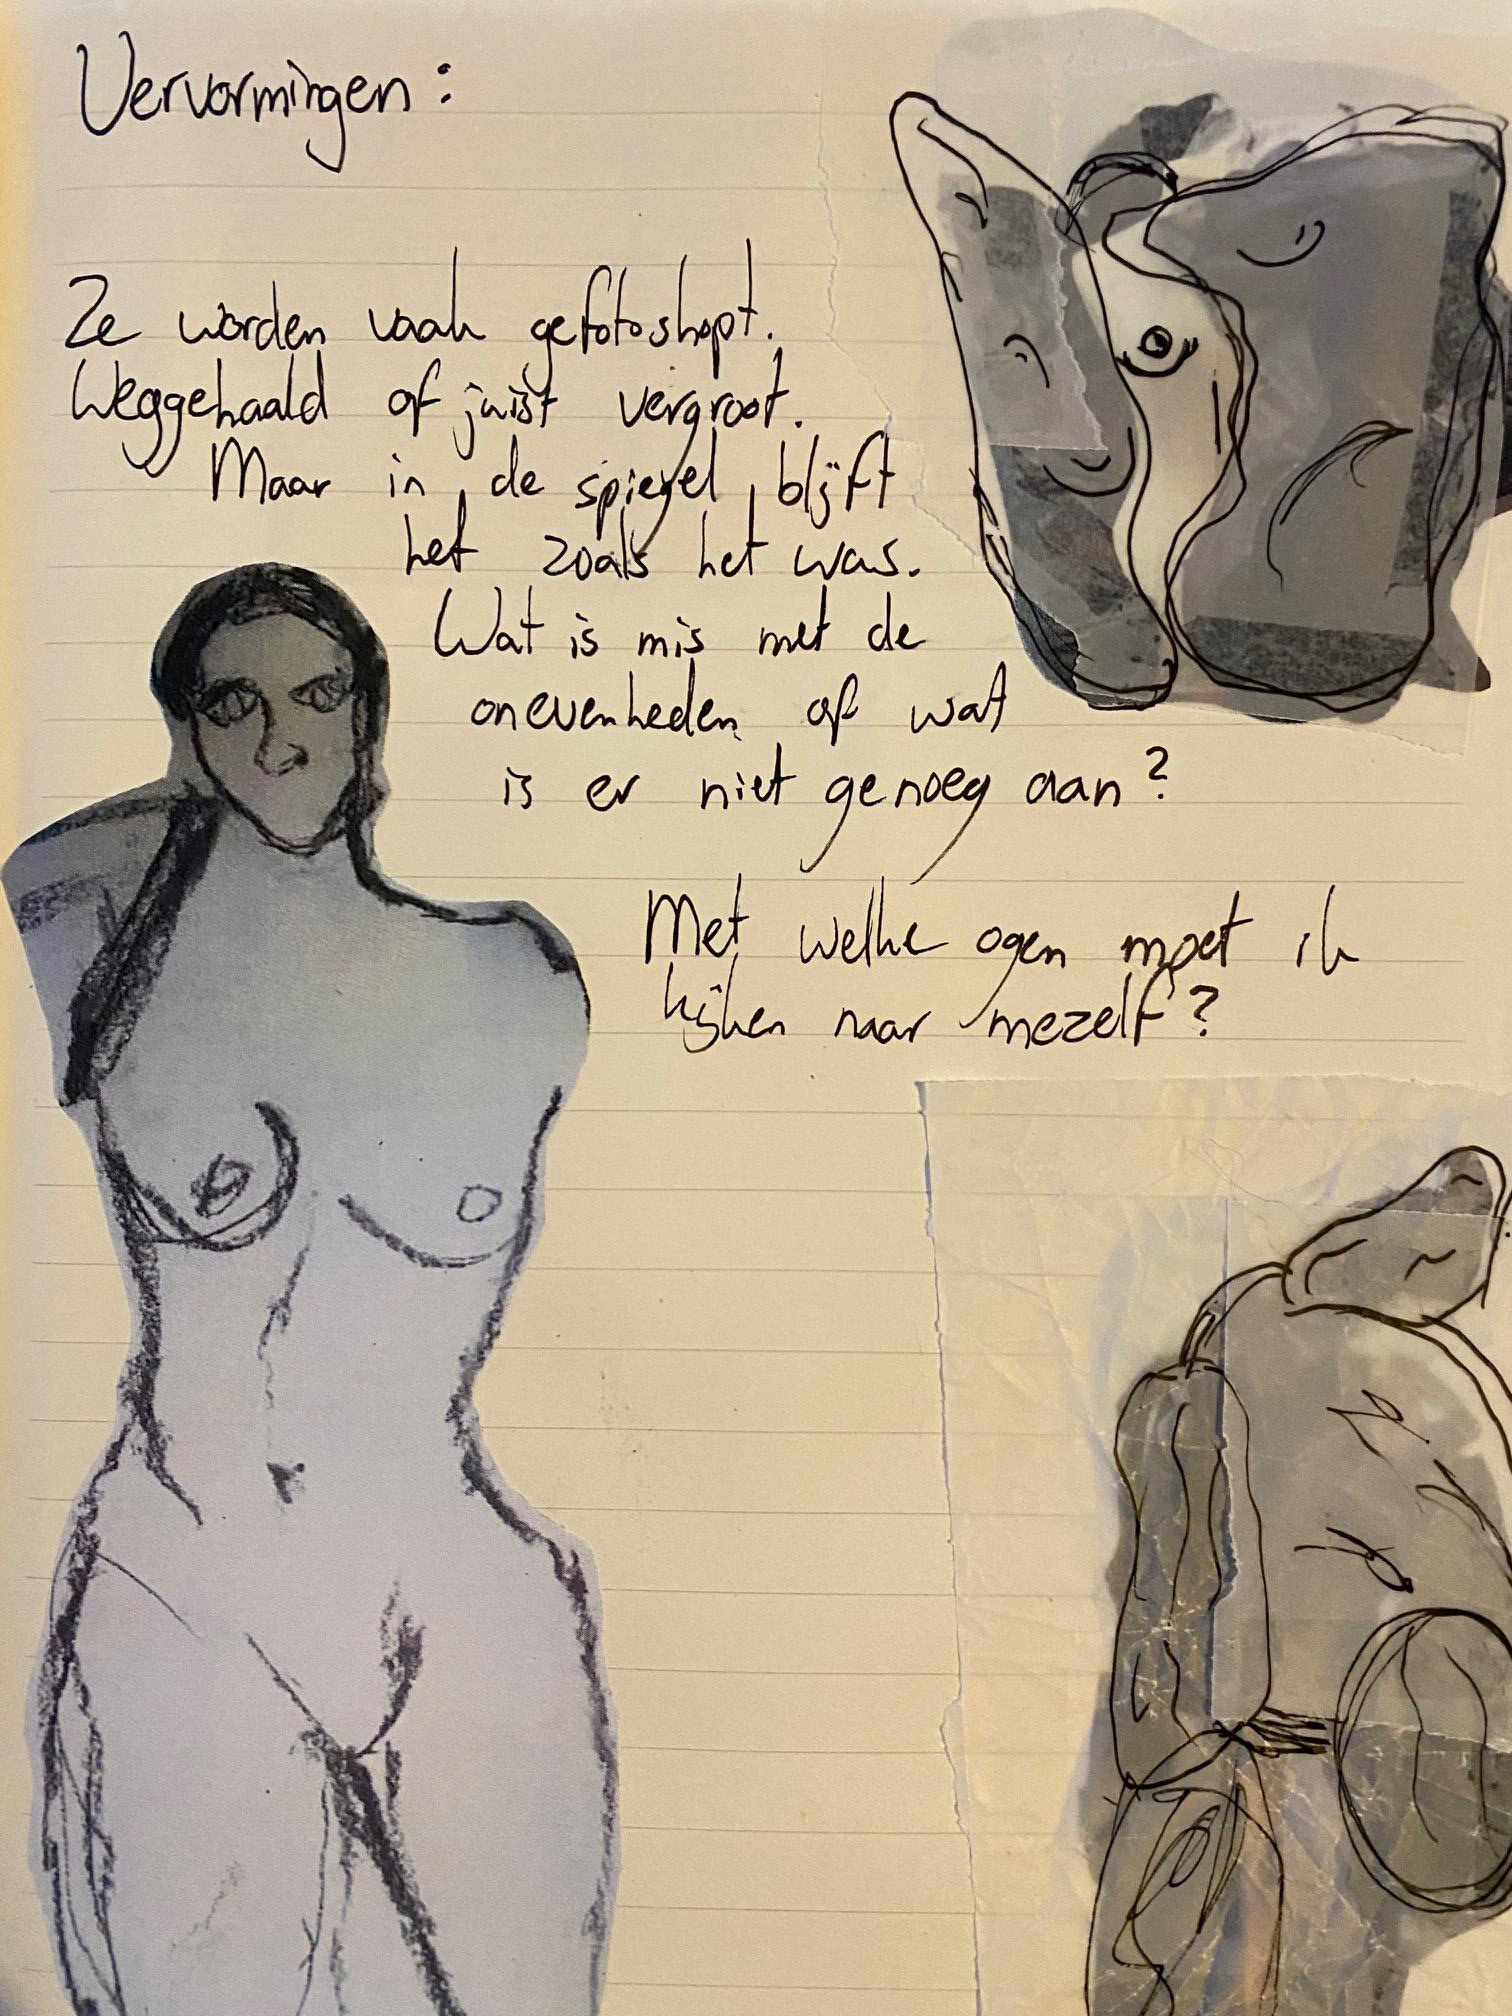 Vervormingen:
Ze worden vaak gefotoshopt.
Weggehaald of juist vergroot.
Maar in de spiegel blijft
het zoals het was.
Wat is mis met de
onevenheden of wat
is er niet genoeg aan?
Met welke ogen moet ik
kijken naar mezelf?